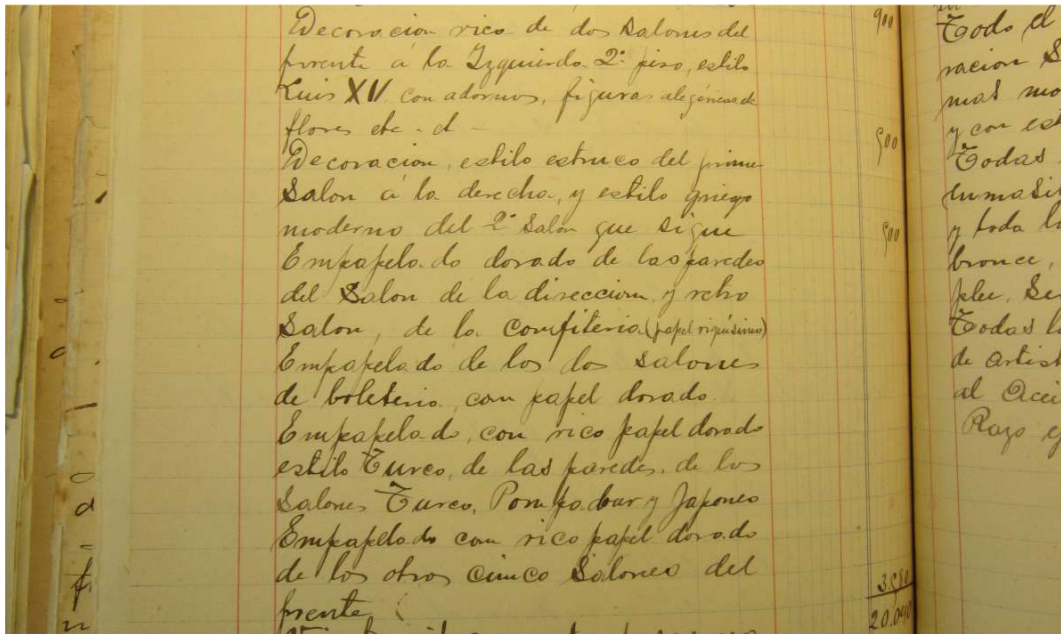 Decoracion rica de dos salones del 900
frente á la Izquierda 2º piso, estilo
Luis XV con adornos, figuras alegóricas de
flores etc.
Decoracion, estilo estruco del primer 500
Salon á la derecha, y estilo griego
moderno del 2º Salón que sigue 500
Empapelado dorado de las paredes
del Salon de la direccion y retro
Salon, de la Confiteria (papel riquísimo)
Empapelado de los dos salones
de boleteria, con papel dorado.
Empapelado, con rico papel dorado
estilo Turco, de las paredes, de los
Salones Turco, Pompadour y Japones
Empapelado con rico papel dorado
de los otros cinco Salones del
frente
20.000
Todo el
racion
mas mo
y con est
Todas
y toda la
bronce,
Todas la
de artist
al
Rayo y